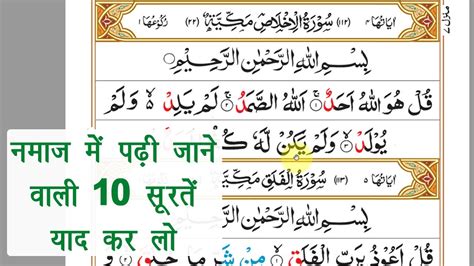 اٰیَاتُهَا ۴ (۱۱۲) سُوْرَةُ الْاِخْلَاصِ مَكِّيَّةٌ (۲۲) رُكُوْعُهَا ۱
بِسْمِ اللّٰهِ الرَّحْمٰنِ الرَّحِيْمِ
قُلْ هُوَ اللّٰهُ اَحَدٌ ۱ اَللّٰهُ الصَّمَدُ ۲ لَمْ يَلِدْ ۙ وَلَمْ
يُوْلَدْ ۳ وَلَمْ يَكُنْ لَّهٗ
اٰیَاتُهَا ۵ (۱۱۳) سُوْرَةُ الْفَلَقِ
بِسْمِ اللّٰهِ الرَّحْمٰنِ الرَّحِيْمِ
قُلْ اَعُوْذُ بِرَبِّ الْفَلَقِ ۱ مِنْ شَرِّ مَا
नमाज में पढ़ी जाने
वाली 10 सूरतें
याद कर लो